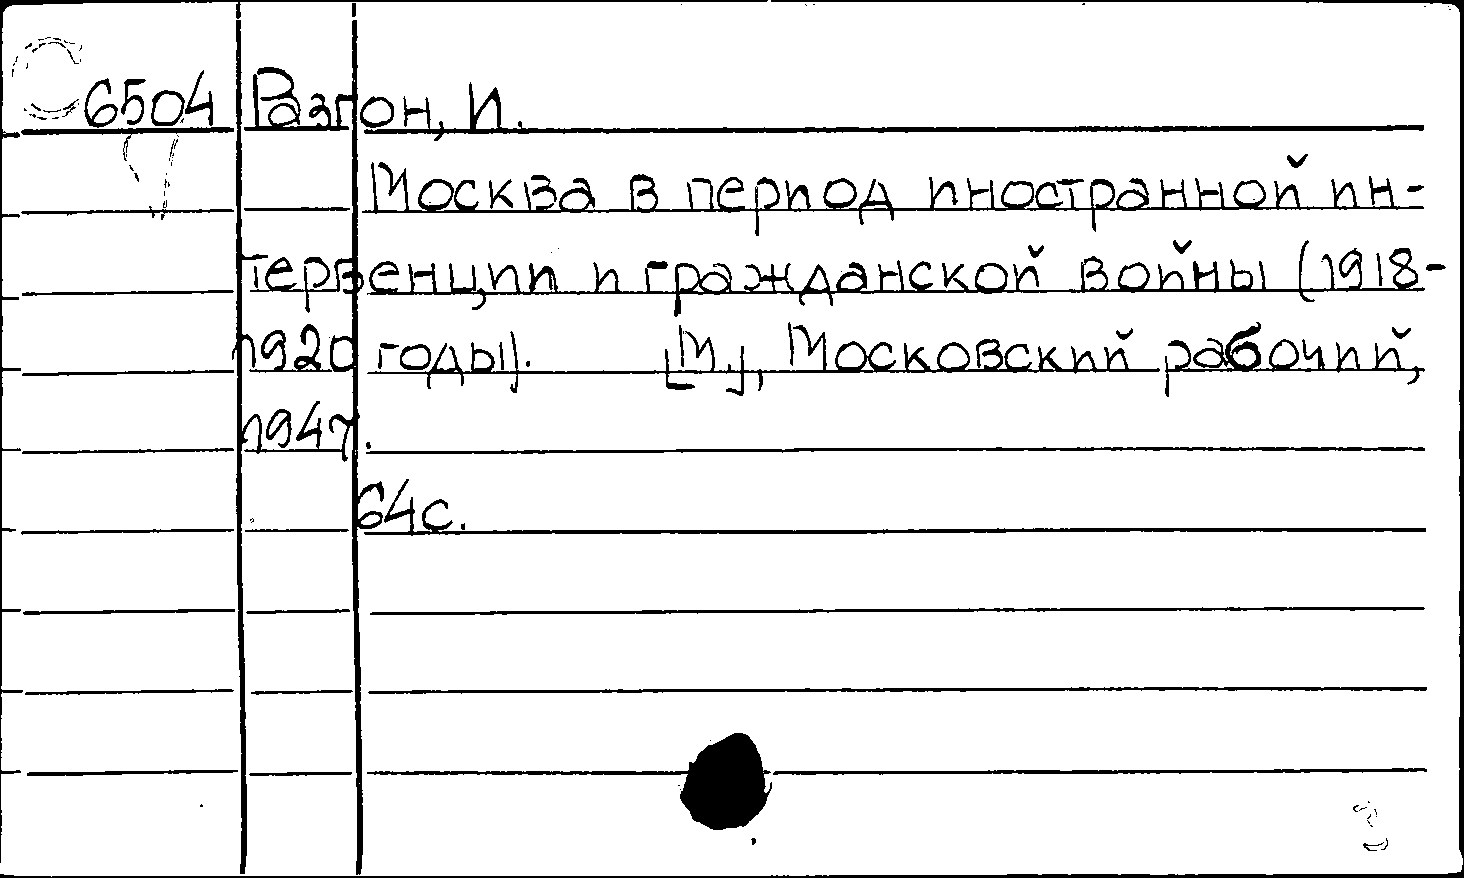 С 6504 Разгон, И.
Москва в период иностранной ин-
тервенции и гражданской войны (1918-
1920 годы). [М.], Московский рабочий,
1947.
64с.
3